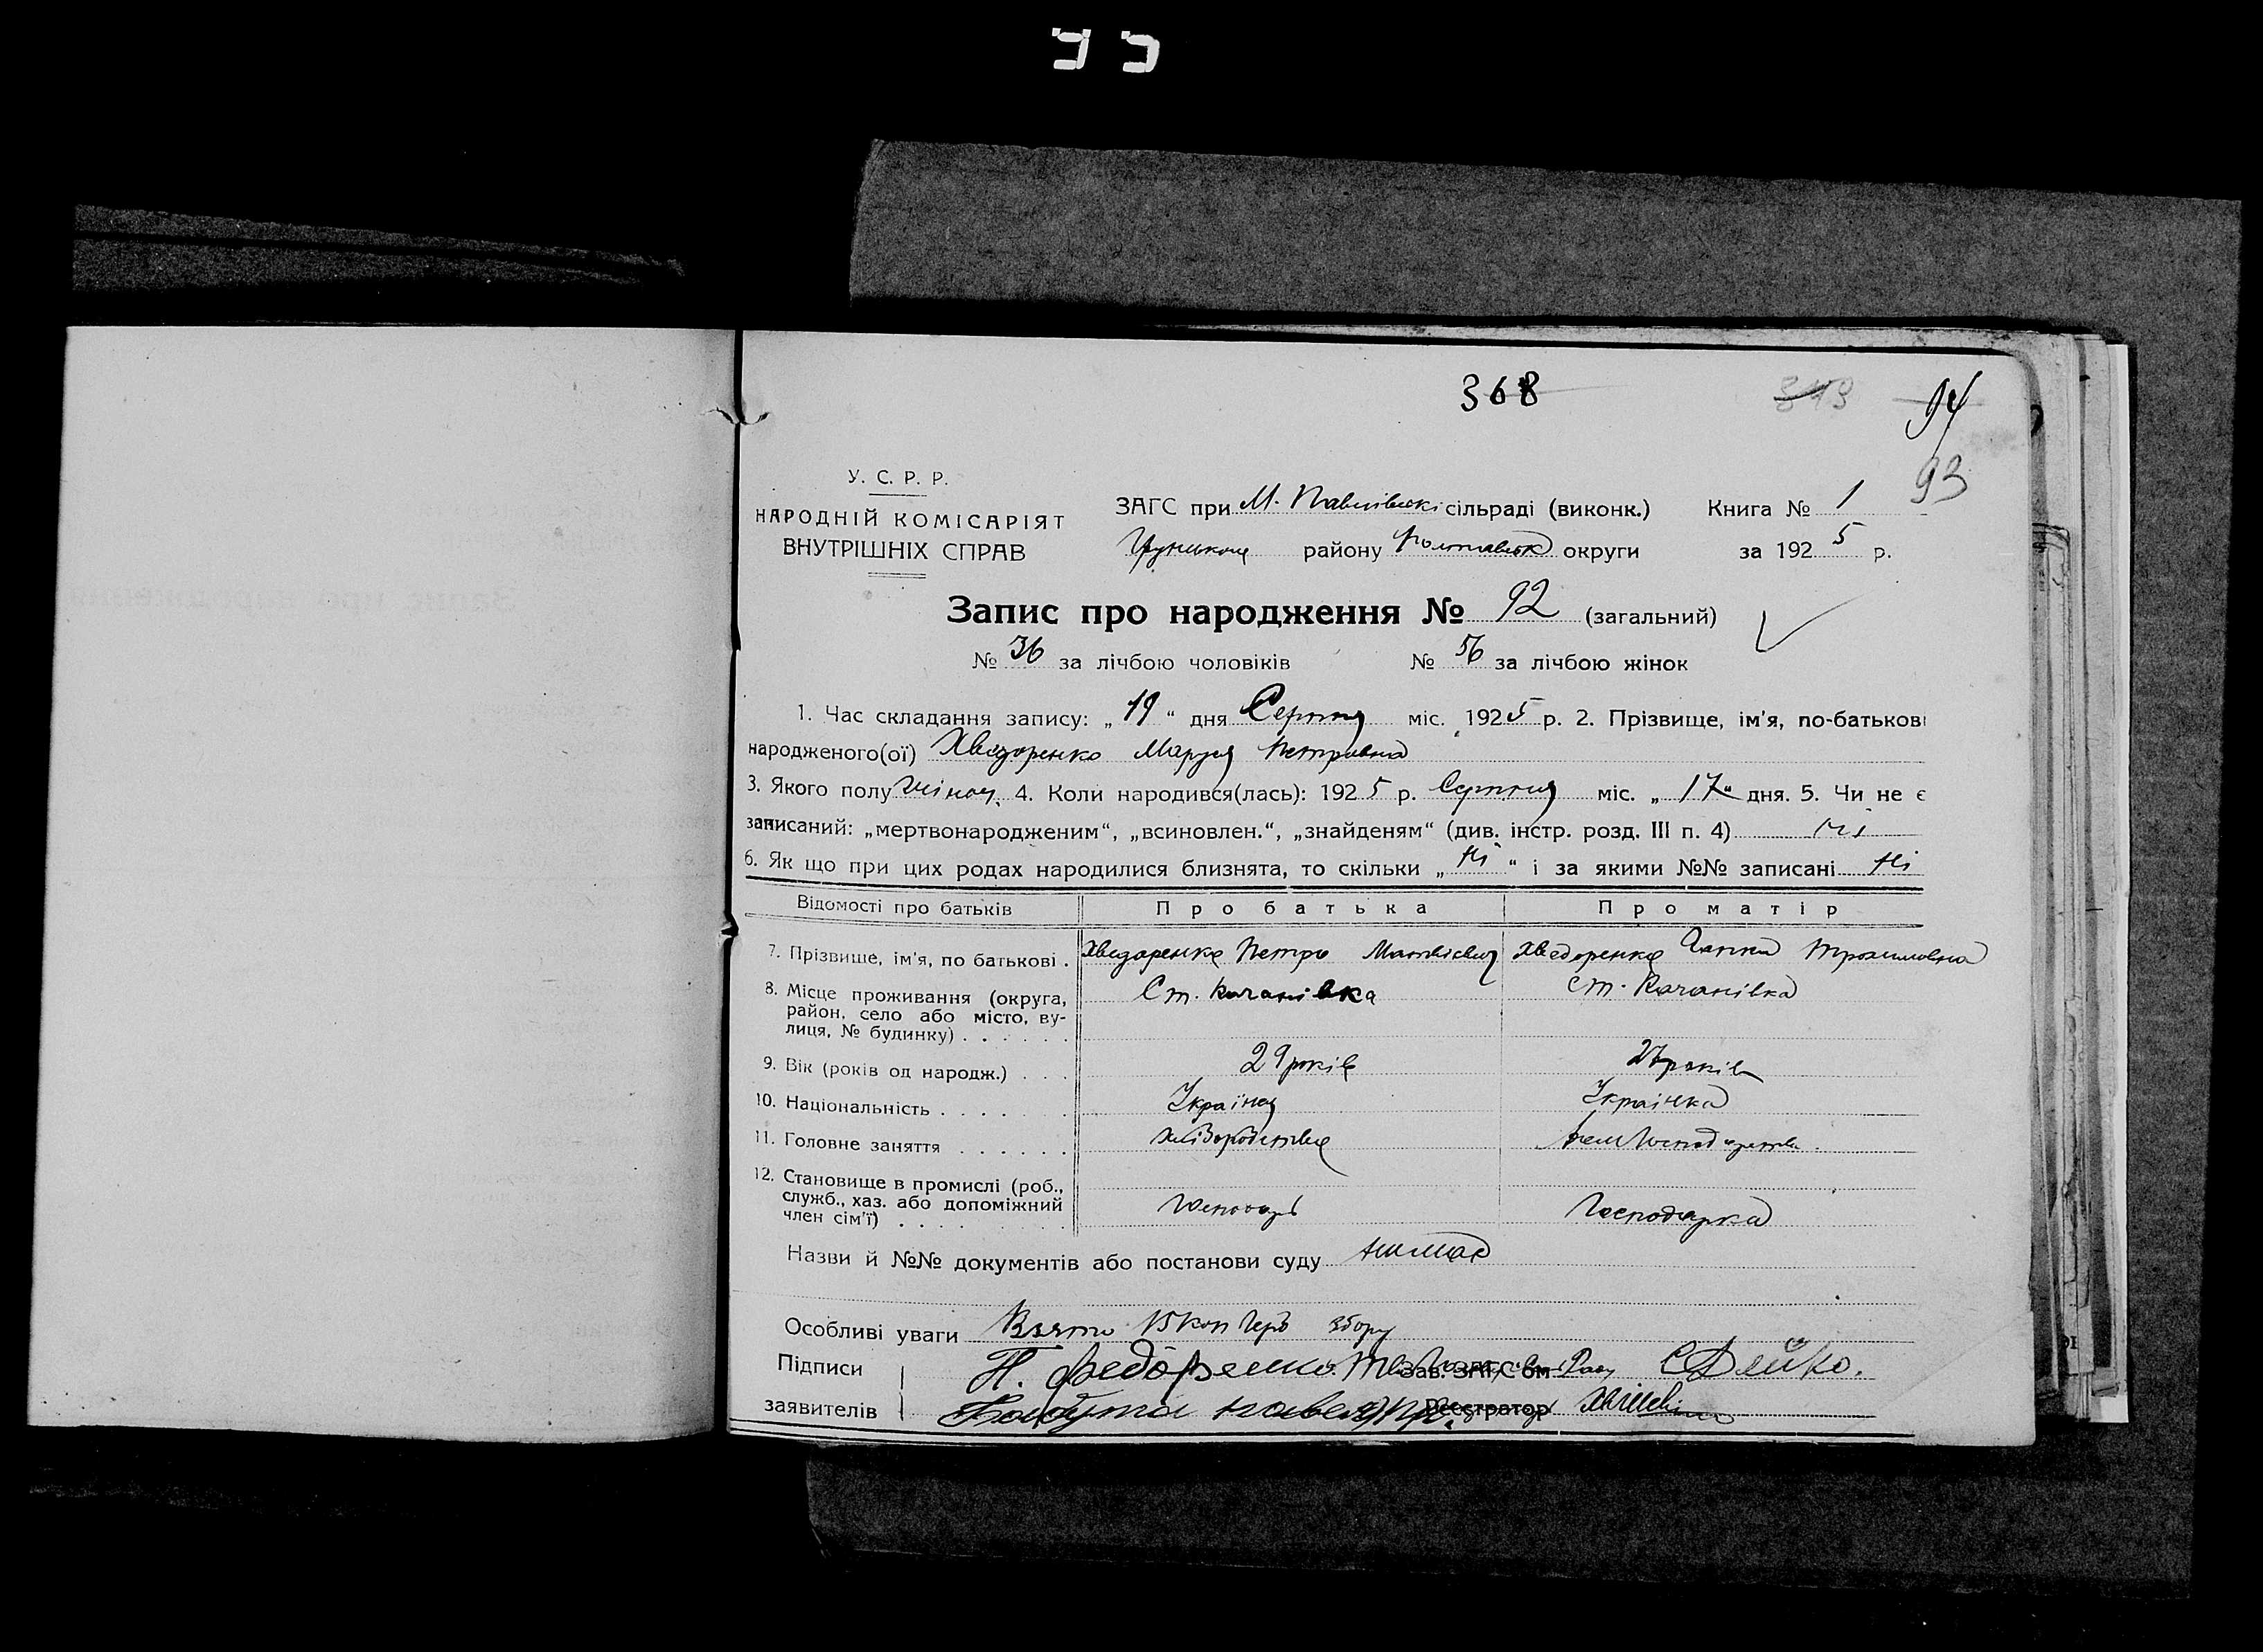 368 94
93
У. С. Р. Р.
НАРОДНІЙ КОМІСАРІЯТ
ВНУТРІШНІХ СПРАВ
ЗАГС при М. Павлівські сільраді (виконк.) Книга № 1
району Полтавськ округи за 1925 р.
Запис про народження № 92 (загальний)
№ 36 за лічбою чоловіків № 56 за лічбою жінок
1. Час складання запису: „19“ дня Серпня міс. 1925 р. 2. Прізвище, ім'я, по-батькові
народженого(ої) Хведоренко Маруся Петровна
3. Якого полу жіноч. 4. Коли народився(лась): 1925 р. Серпня міс. „17“ дня. 5. Чи не є
записаний: „мертвонародженим“, „всиновлен.“, „знайденям“ (див. інстр. розд. III п. 4) Ні
6. Як що при цих родах народилися близнята, то скільки „Ні“ і за якими №№ записані Ні
Відомості про батьків Про батька Про матір
7. Прізвище, ім'я, по батькові . Хведоренко Петро Матвієвич Хведоренко Ганна Трохимовна
8. Місце проживання (округа, район, село або місто, вулиця, № будинку) . . . . . . Ст. Качанівка Ст. Качанівка
9. Вік (років од народж.) . . . 29 років 27 років
10. Національність . . . . . . . Українец Українка
11. Головне заняття . . . . . . Хліборобство
12. Становище в промислі (роб., служб., хаз. або допоміжний член сім'ї) . . . . . . . . Господарь Господарка
Назви й №№ документів або постанови суду немає
Особливі уваги Взято 15 коп Герб збору
Підписи П. Федоренко Зав. ЗАГС'ом С Дейко.
заявителів Реєстратор